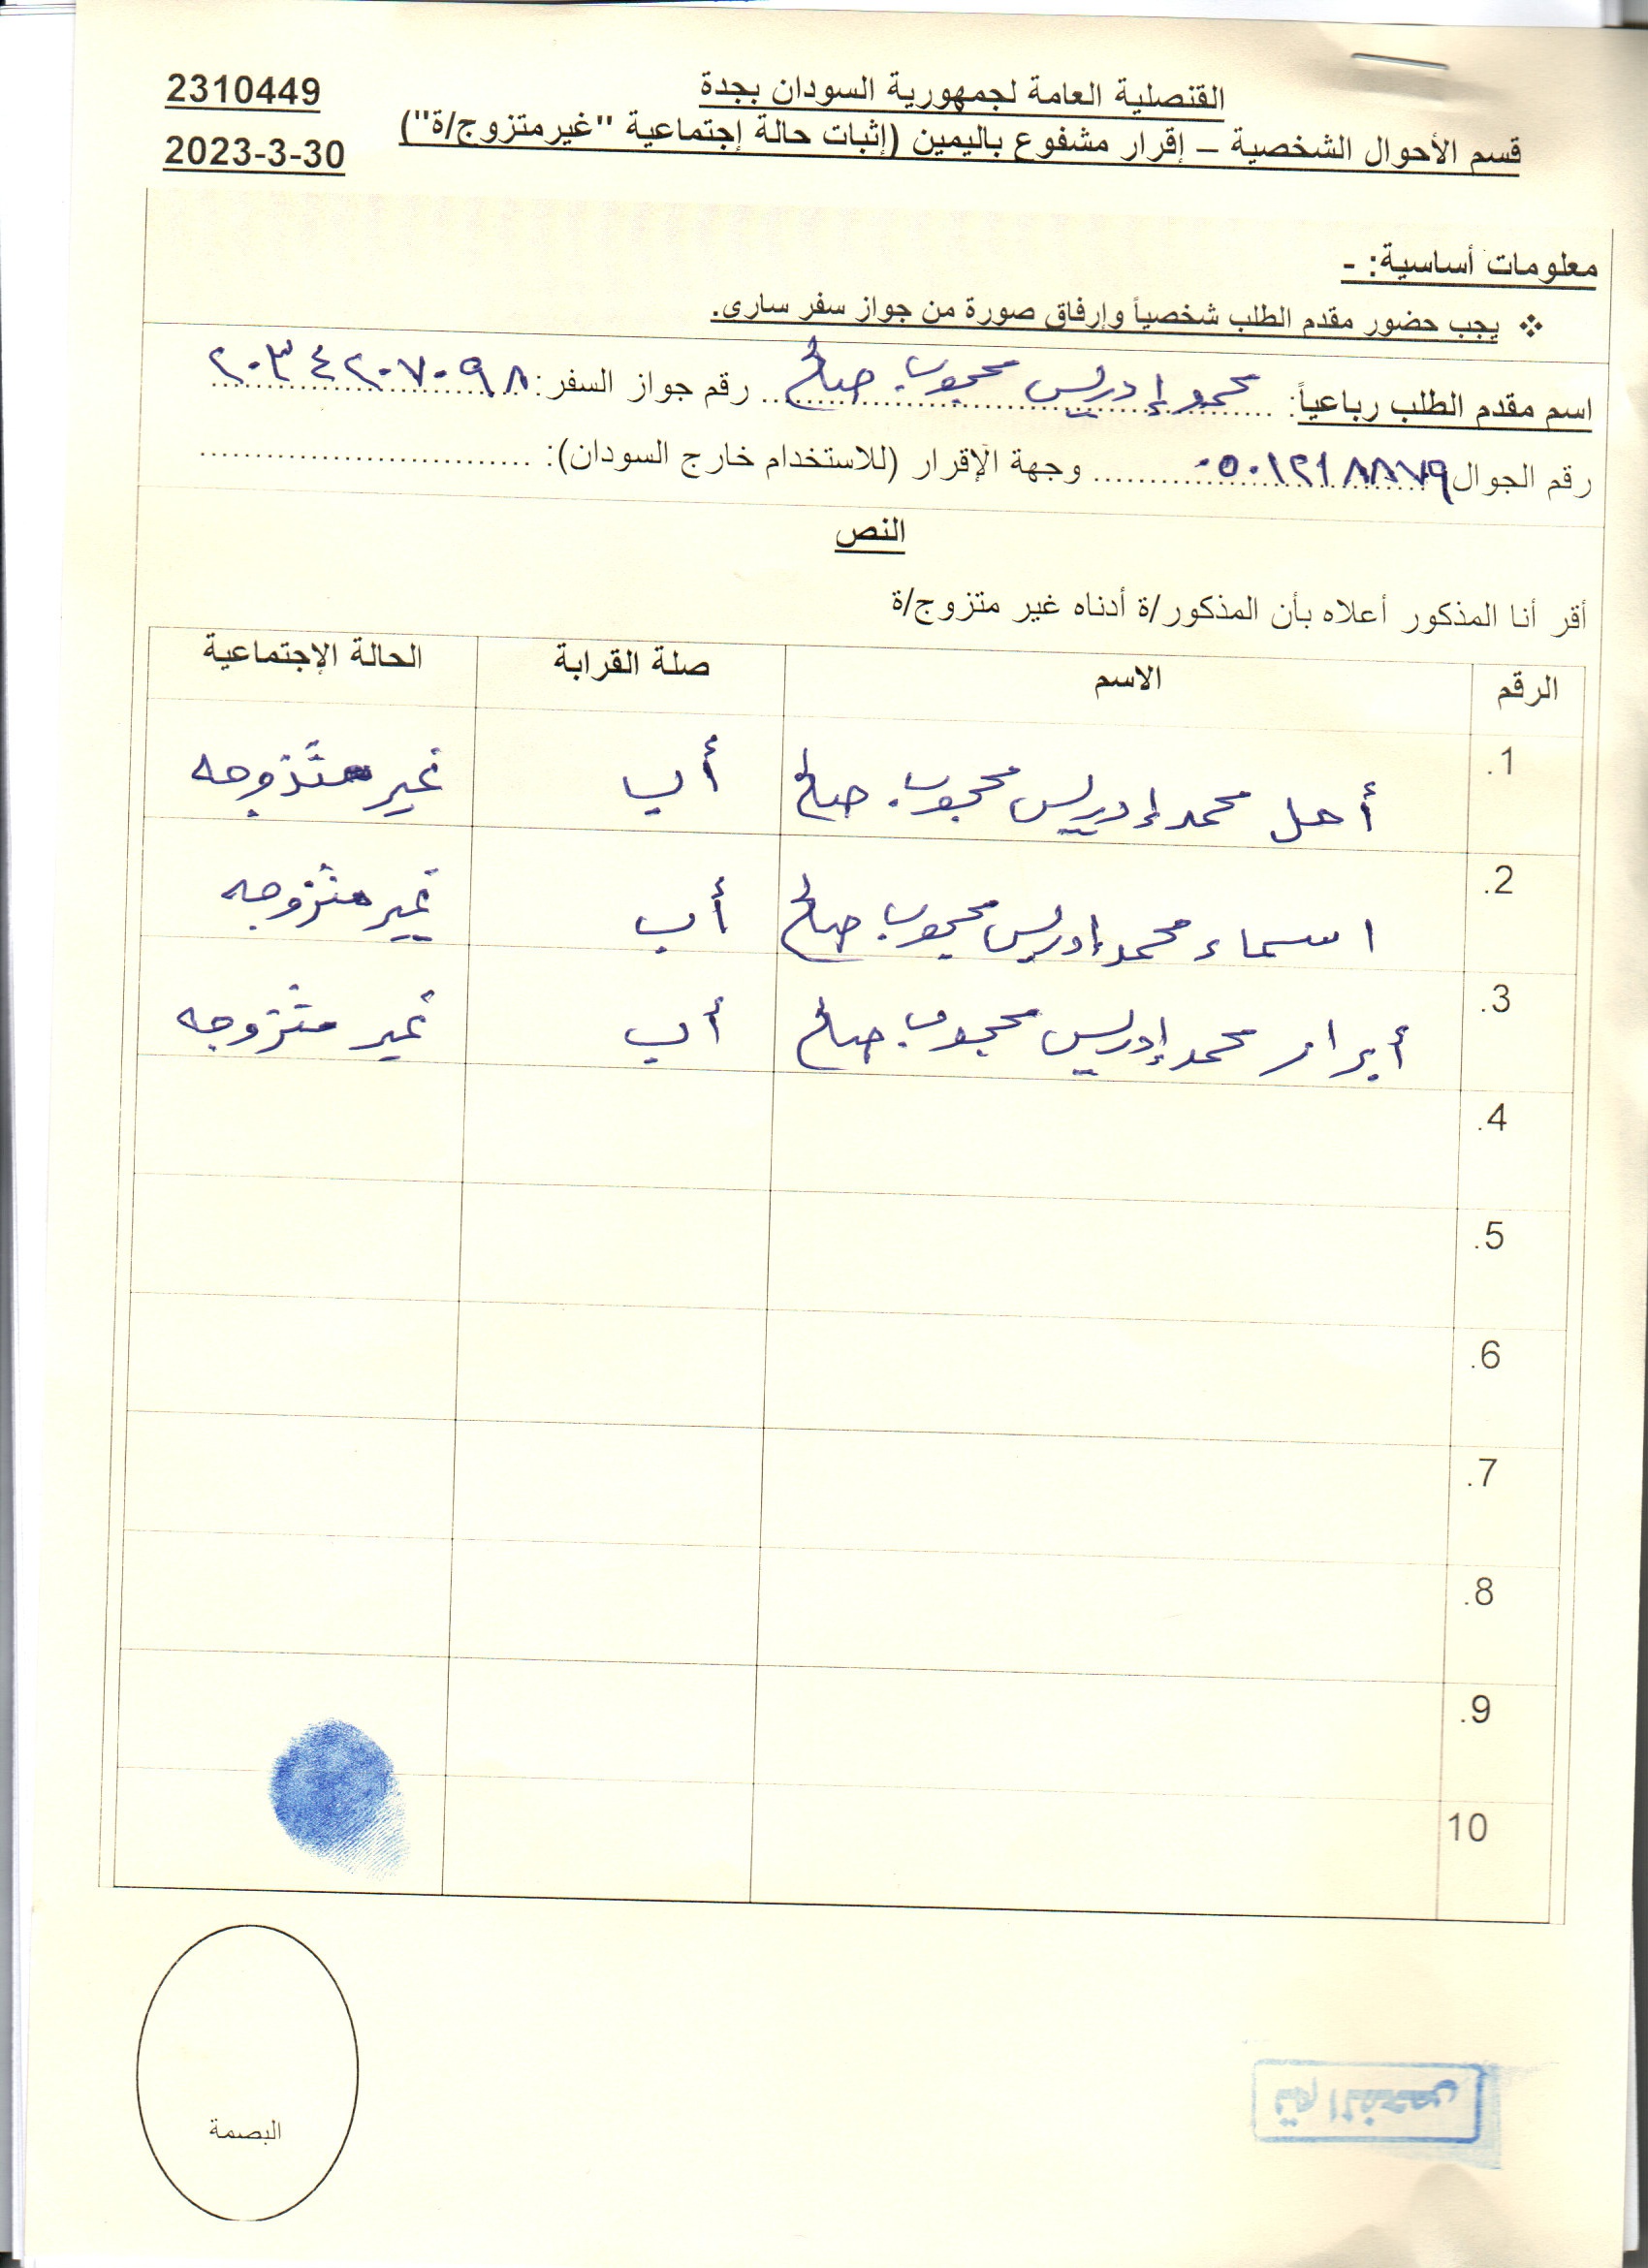 القنصلية العامة لجمهورية السودان بجدة
2310449
قسم الأحوال الشخصية – إقرار مشفوع باليمين (إثبات حالة إجتماعية "غيرمتزوج/ة")
2023-3-30
معلومات أساسية: -
❖ يجب حضور مقدم الطلب شخصياً وإرفاق صورة من جواز سفر سارى.
اسم مقدم الطلب رباعياً: محمد إدريس محجوب صالح رقم جواز السفر:
رقم الجوال ٠٥٠١٢١٨٨٧٩ وجهة الإقرار (للاستخدام خارج السودان):
النص
أقر أنا المذكور أعلاه بأن المذكور/ة أدناه غير متزوج/ة
الرقم الاسم صلة القرابة الحالة الإجتماعية
1. أمل محمد إدريس محجوب صالح أب غير متزوجه
2. اسماء محمد إدريس محجوب صالح أب غير متزوجه
3. أبرار محمد إدريس محجوب صالح أب غير متزوجه
4.
5.
6.
7.
8.
9.
10
البصمة
تم الفحص